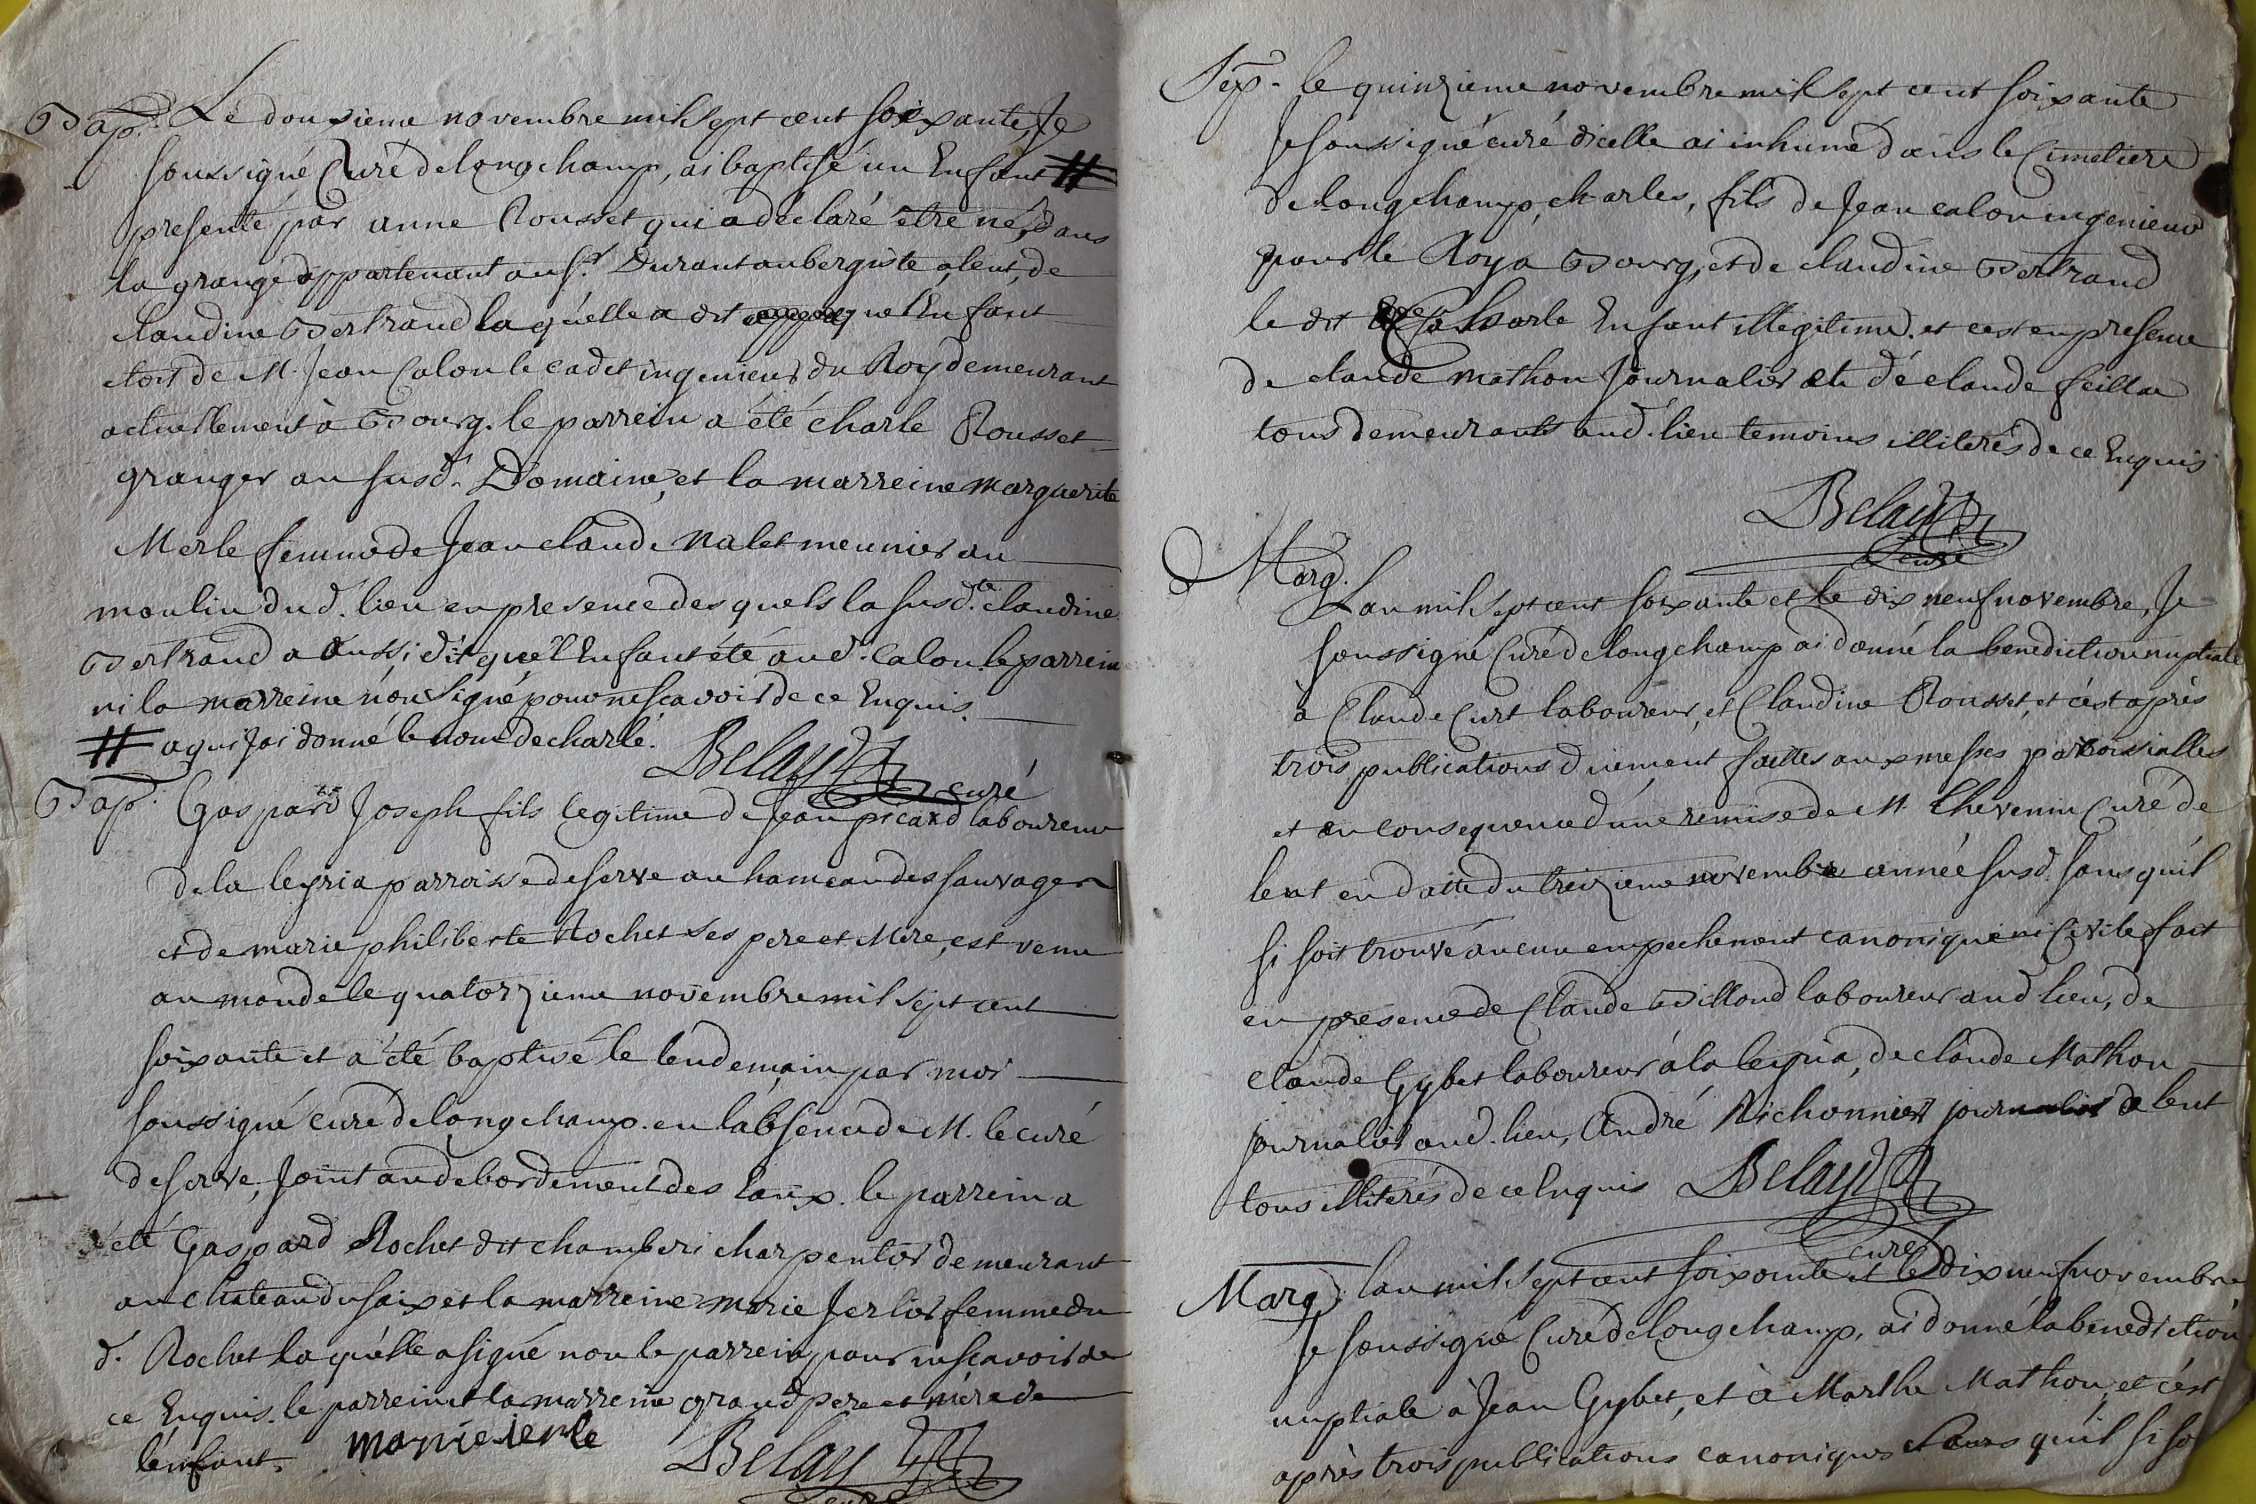 Bap. Le douxieme novembre mil sept cent soixante, Je
soussigné Curé de longchamp, ai baptisé un Enfant #
presenté par anne Rousset qui a déclaré être né, dans
la grange appartenant au sr. Durant aubergiste a lent, de
claudine Bertrand la quélle a dit que l'Enfant
etoit de M. Jean Calon le cadet ingenieur du Roy demeurant
actuellement à Bourg. le parrein a été charle Rousset
granger au susd. Domaine, et la marreine marguerite
Merle femme de Jean claude Nalet meunier au
moulin dud. lieu en presence des quels la susd.te claudine
Bertrand a aussi dit que l'Enfant été aud. Calon. le parrein
ni la marreine n'on signé pour ne scavoir de ce Enquis.
# a qui J'ai donné le nom de charle. Belay
curé
Bap. Gaspard Joseph fils legitime de Jean picard laboureur
de la leyria parroisse de serve au hameau des sauvages
et de marie philiberte Rochet ses pere et Mere, est venu
au monde le quatorzieme novembre mil sept cent
soixante et a été baptisé le lendemain par moi
soussigné curé de longchamp. en l'absence de M. le curé
de serve, Joint au debordement des Eaux. le parrein a
été Gaspard Rochet dit chamberi charpentier demeurant
au chateau du saix et la marreine marie Jerlie femme du
d. Rochet la quélle a signé non le parrein pour ne scavoir de
ce Enquis. le parrein et la marreine grand pere et mère de
l'énfant. marie ierle Belay
Sep. le quinzieme novembre mil sept cent soixante
Je soussigné curé dicelle ai inhumé dans le Cimetiere
de longchamp, charles, fils de Jean calon ingenieur
pour le Roy a Bourg, et de claudine Bertrand
le dit Charle Enfant illegitime. et cest en presence
de claude mathon Journalier et de claude feillae
tous demeurants aud. lieu temoins illiterés de ce Enquis
Belay
curé
Marg.
Lan mil sept cent soixante et le dix neuf novembre, Je
soussigné Curé de longchamp ai donné la benediction nuptiale
à Claude Curt laboureur, et Claudine Rousset, et c'est après
trois publications duement faittes aux messes paroissialles
et en consequence d'une remise de M. Thevenin Curé de
lent en datte du treizieme novembre année susd. sans qu'il
si soit trouvé aucun empechement canonique ni Civile fait
en présence de Claude Billoud laboureur aud. lieu, de
claude Gybet laboureur à la leyria, de claude Mathon
journalier aud. lieu, André Richonnier journalier a lent
tous illiterés de ce Enquis Belay
curé
Marg. lan mil sept cent soixante et le dix neuf novembre
Je soussigné Curé de longchamp, ai donné la benediction
nuptiale à Jean Gybet, et à Marthe Mathon, et c'est
après trois publications canoniques et sans qu'il si so